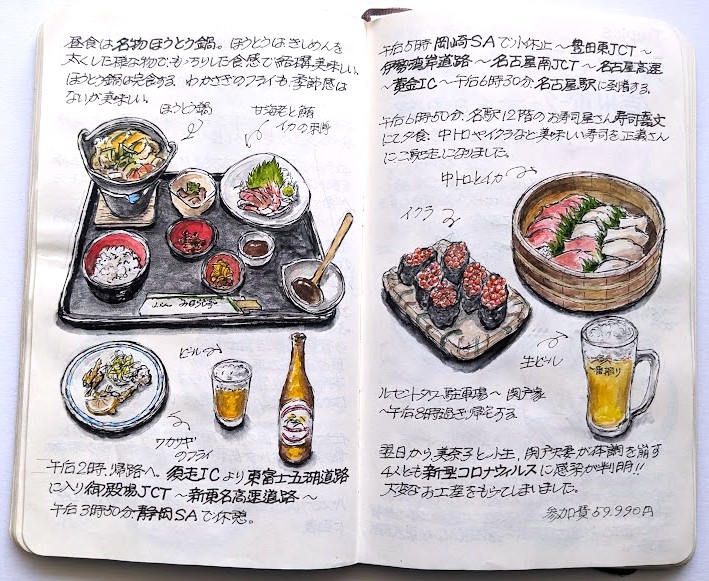 昼食は名物ほうとう鍋。ほうとうはきしめんを
太くした様な物で、もっちりした食感で結構美味しい。
ほうとう鍋は完食する。わかさぎのフライも、季節感は
ないが美味しい。
ほうとう鍋
甘海老と鮪
イカの刺身
ビール
ワカサギ
のフライ
午后2時、帰路へ。須走ICより東富士五湖道路
に入り御殿場JCT〜新東名高速道路〜
午后3時50分静岡SAで休憩。
午后5時岡崎SAで小休止〜豊田東JCT〜
伊勢湾岸道路〜名古屋南JCT〜名古屋高速
〜黄金IC〜午后6時30分、名古屋駅に到着する。
午后6時50分、名駅12階のお寿司屋さん寿司嘉文
にて夕食、中トロやイクラなど美味しい寿司を正義さん
にご馳走になりました。
中トロとイカ
イクラ
生ビール
一番搾り
ルーセントタワー駐車場〜関戸家
〜午后8時過ぎ帰宅する。
翌日から、美奈子と小生、関戸夫妻が体調を崩す
4人とも新型コロナウィルスに感染が判明!!
大変なお土産をもらてしまいました。
参加費59,990円